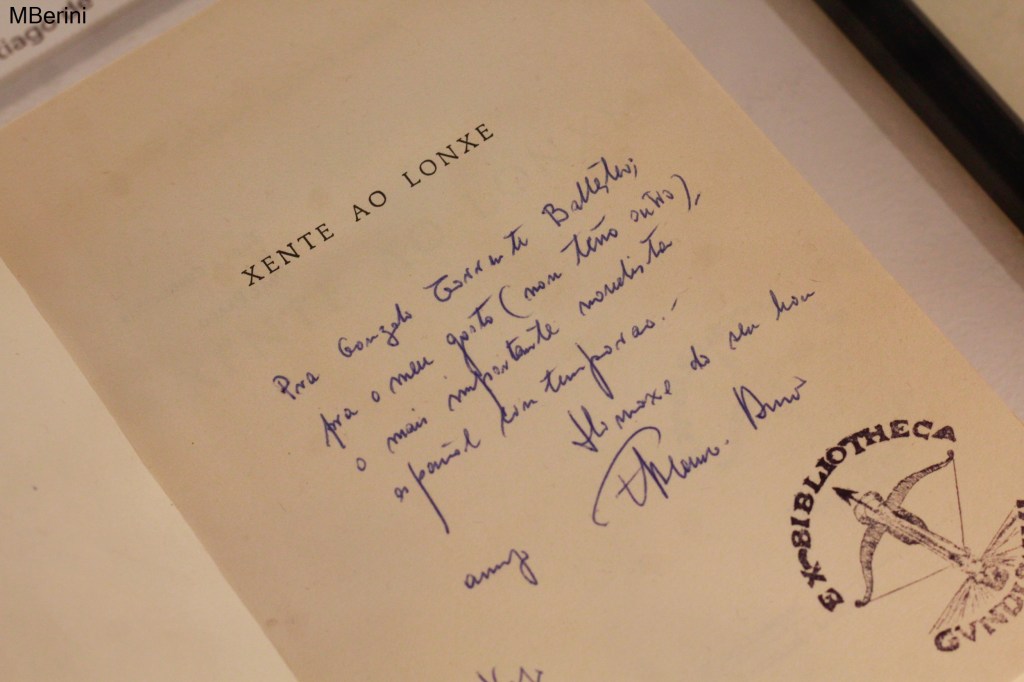 MBerini
tiago de
XENTE AO LONXE
Pra Gonzalo Torrente Ballester,
pra o meu gosto (non teño outro),
o mais importante novelista
español contemporao.-
Homaxe do seu bon
amigo
EX-BIBLIOTHECA